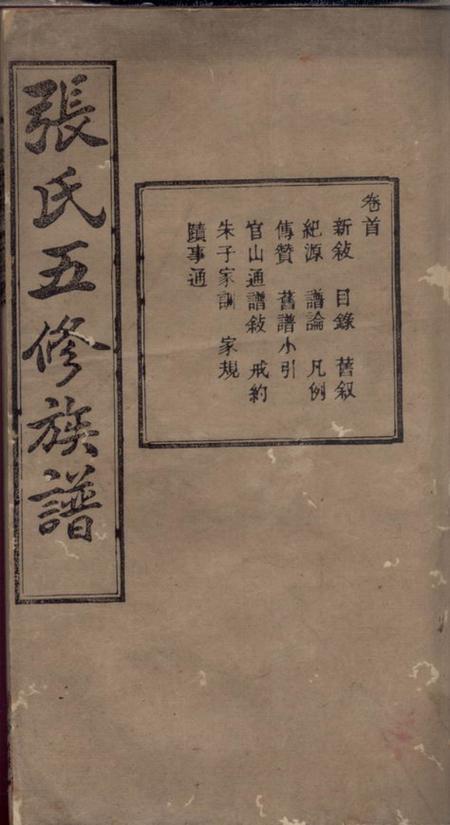 張氏五修族譜
卷首
新敍 目錄 舊叙
紀源 譜論 凡例
傳贊 舊譜小引
官山通譜敍 戒約
朱子家訓 家規
蹟事通